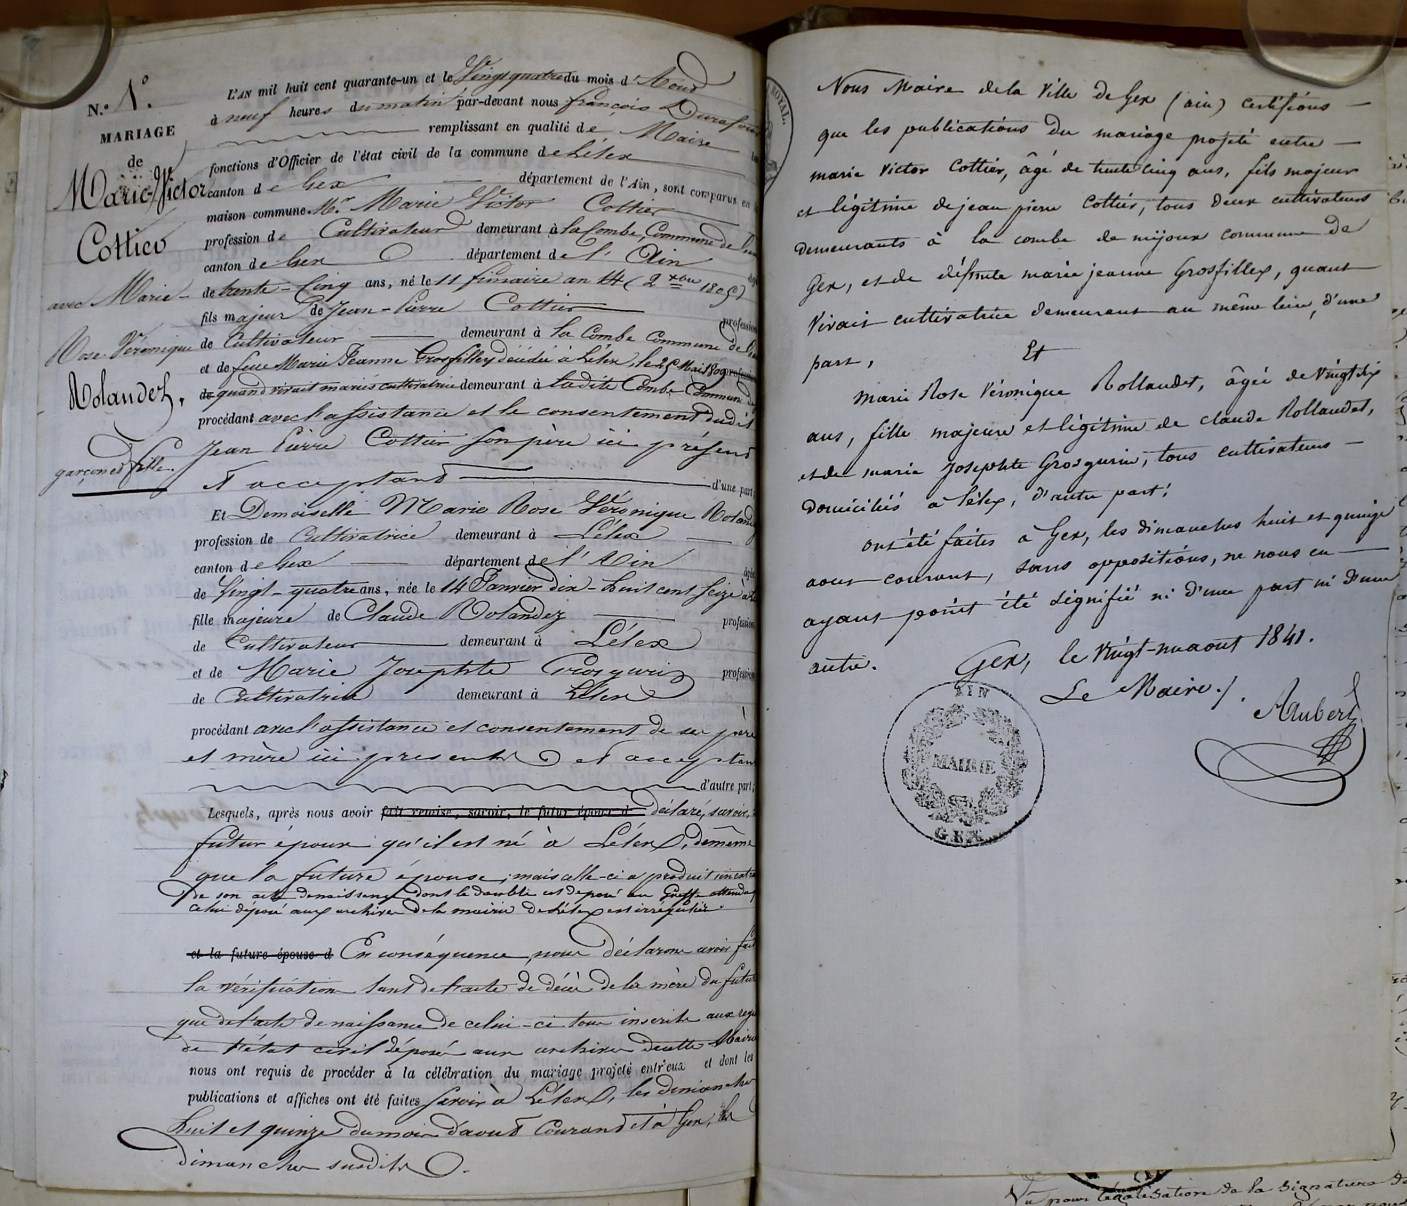 N.° 1.°
MARIAGE
de
Marie Victor
Cottier
avec Marie-
Rose Véronique
Rolandez,
garçon et fille.
L'AN mil huit cent quarante-un et le Vingt quatre du mois d'Aoust
à neuf heures du matin par-devant nous françois Durafour
remplissant en qualité de Maire
fonctions d'Officier de l'état civil de la commune de Lélex
canton de Gex département de l'Ain, sont comparus en
maison commune Mr. Marie Victor Cottier
profession de Cultivateur demeurant à la Combe, Commune de
canton de Gex département de l'Ain
de trente-Cinq ans, né le 11 frimaire an 14 (2 xbre 1805)
fils majeur de Jean-Pierre Cottier profession
de Cultivateur demeurant à la Combe Commune de
et de feue Marie Jeanne Grosfilley décédée à Lélex, le 25 Mai 1809 profession
de quand vivait mariée cultivatrice demeurant à ladite Combe Commune
procédant avec l'assistance et le consentement dudit
Jean Pierre Cottier son père ici présent
et acceptant d'une part,
Et Demoiselle Marie Rose Véronique Roland
profession de Cultivatrice demeurant à Lélex
canton de Gex département de l'Ain
de Vingt-quatre ans, née le 14 Janvier dix-huit cent seize à
fille majeure de Claude Rolandez profession
de Cultivateur demeurant à Lélex
et de Marie Josephte Grosgurin profession
de Cultivatrice demeurant à Lélex
procédant avec l'assistance et consentement de ses père
et mère ici présents et acceptans
d'autre part;
Lesquels, après nous avoir fait remise, savoir, le futur époux d' déclaré, savoir,
futur époux qu'il est né à Lélex, de même
que la future épouse; mais celle-ci a produit un extra
de son acte de naissance dont le double est déposé au Greffe attendu
celui déposé aux archives de la mairie de Lélex est irrégulier.
et la future épouse d En conséquence nous déclarons avoir fait
la vérification tant de l'acte de décès de la mère du futur
que de l'acte de naissance de celui-ci tous inscrits aux regi
de l'état civil déposé aux archives de cette Mairie
nous ont requis de procéder à la célébration du mariage projeté entr'eux et dont les
publications et affiches ont été faites savoir à Lélex, les dimanches
huit et quinze du mois d'aout Courant et à Gex, les
dimanches susdits.
ROYAL.
Nous Maire de la Ville de Gex (ain) certifions
que les publications du mariage projeté entre
marie Victor Cottier, âgé de trente cinq ans, fils majeur
et légitime de jean pierre Cottier, tous deux cultivateurs
demeurants à la combe de mijoux commune de
Gex, et de défunte marie jeanne Grosfilley, quant
vivait cultivatrice demeurant au même lieu, d'une
part,
Et
Marie Rose Véronique Rollandet, âgée de vingt six
ans, fille majeure et légitime de claude Rollandet,
et de marie Josephte Grosgurin, tous cultivateurs
domiciliés à lélex, d'autre part;
ont été faites à Gex, les dimanches huit et quinze
aout courant, sans oppositions, ne nous en
ayant point été signifié ni d'une part ni d'une
autre.
Gex, le vingt-un aout 1841.
Le Maire./.
Aubert
AIN
MAIRIE
GEX
Vu pour légalisation de la signature de